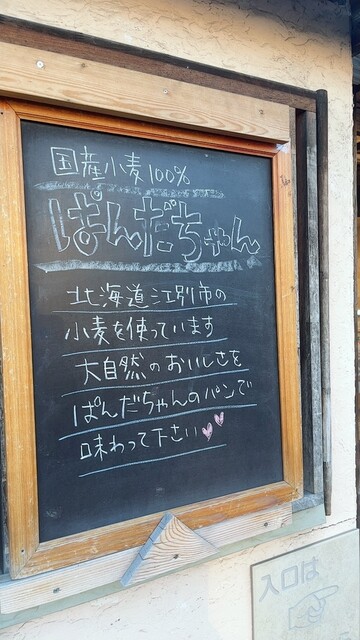 国産小麦100%
ぱんだちゃん
北海道江別市の
小麦を使っています
大自然のおいしさを
ぱんだちゃんのパンで
味わって下さい
入口は